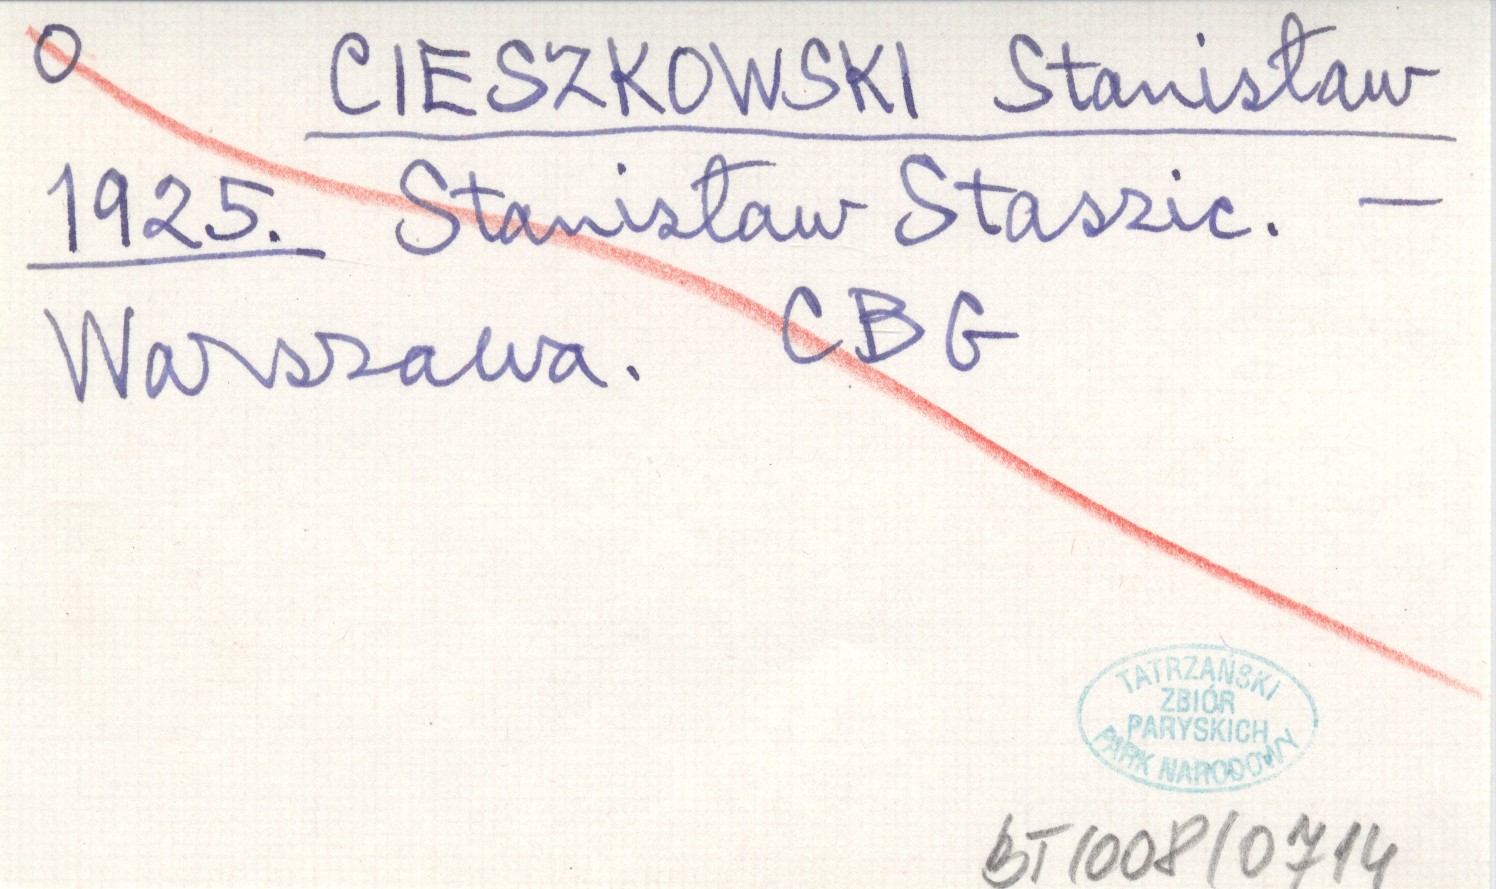 O CIESZKOWSKI Stanisław
1925. Stanisław Staszic. —
Warszawa. CBG
TATRZAŃSKI
ZBIÓR
PARYSKICH
PARK NARODOWY
BT/008/0714